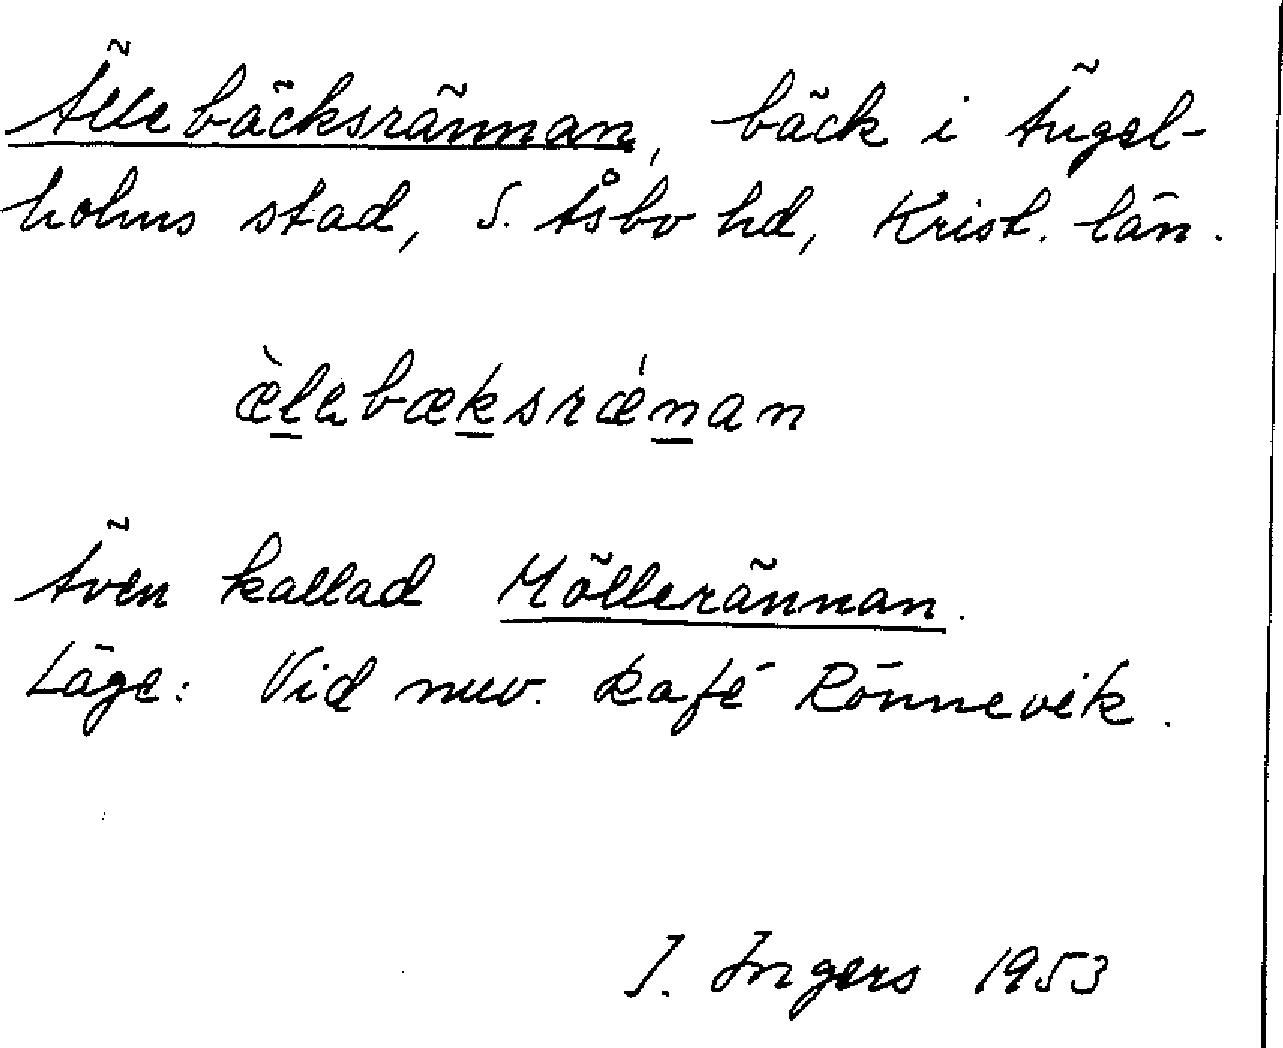 Ällebäcksrännan, bäck i Ängel-
holms stad, S. Åsbo hd, Krist. län.
æ̀l̲ebæk̲srǽn̲an
Även kallad Möllerännan.
Läge: Vid nuv. kafé Rönnevik.
I. Ingers 1953